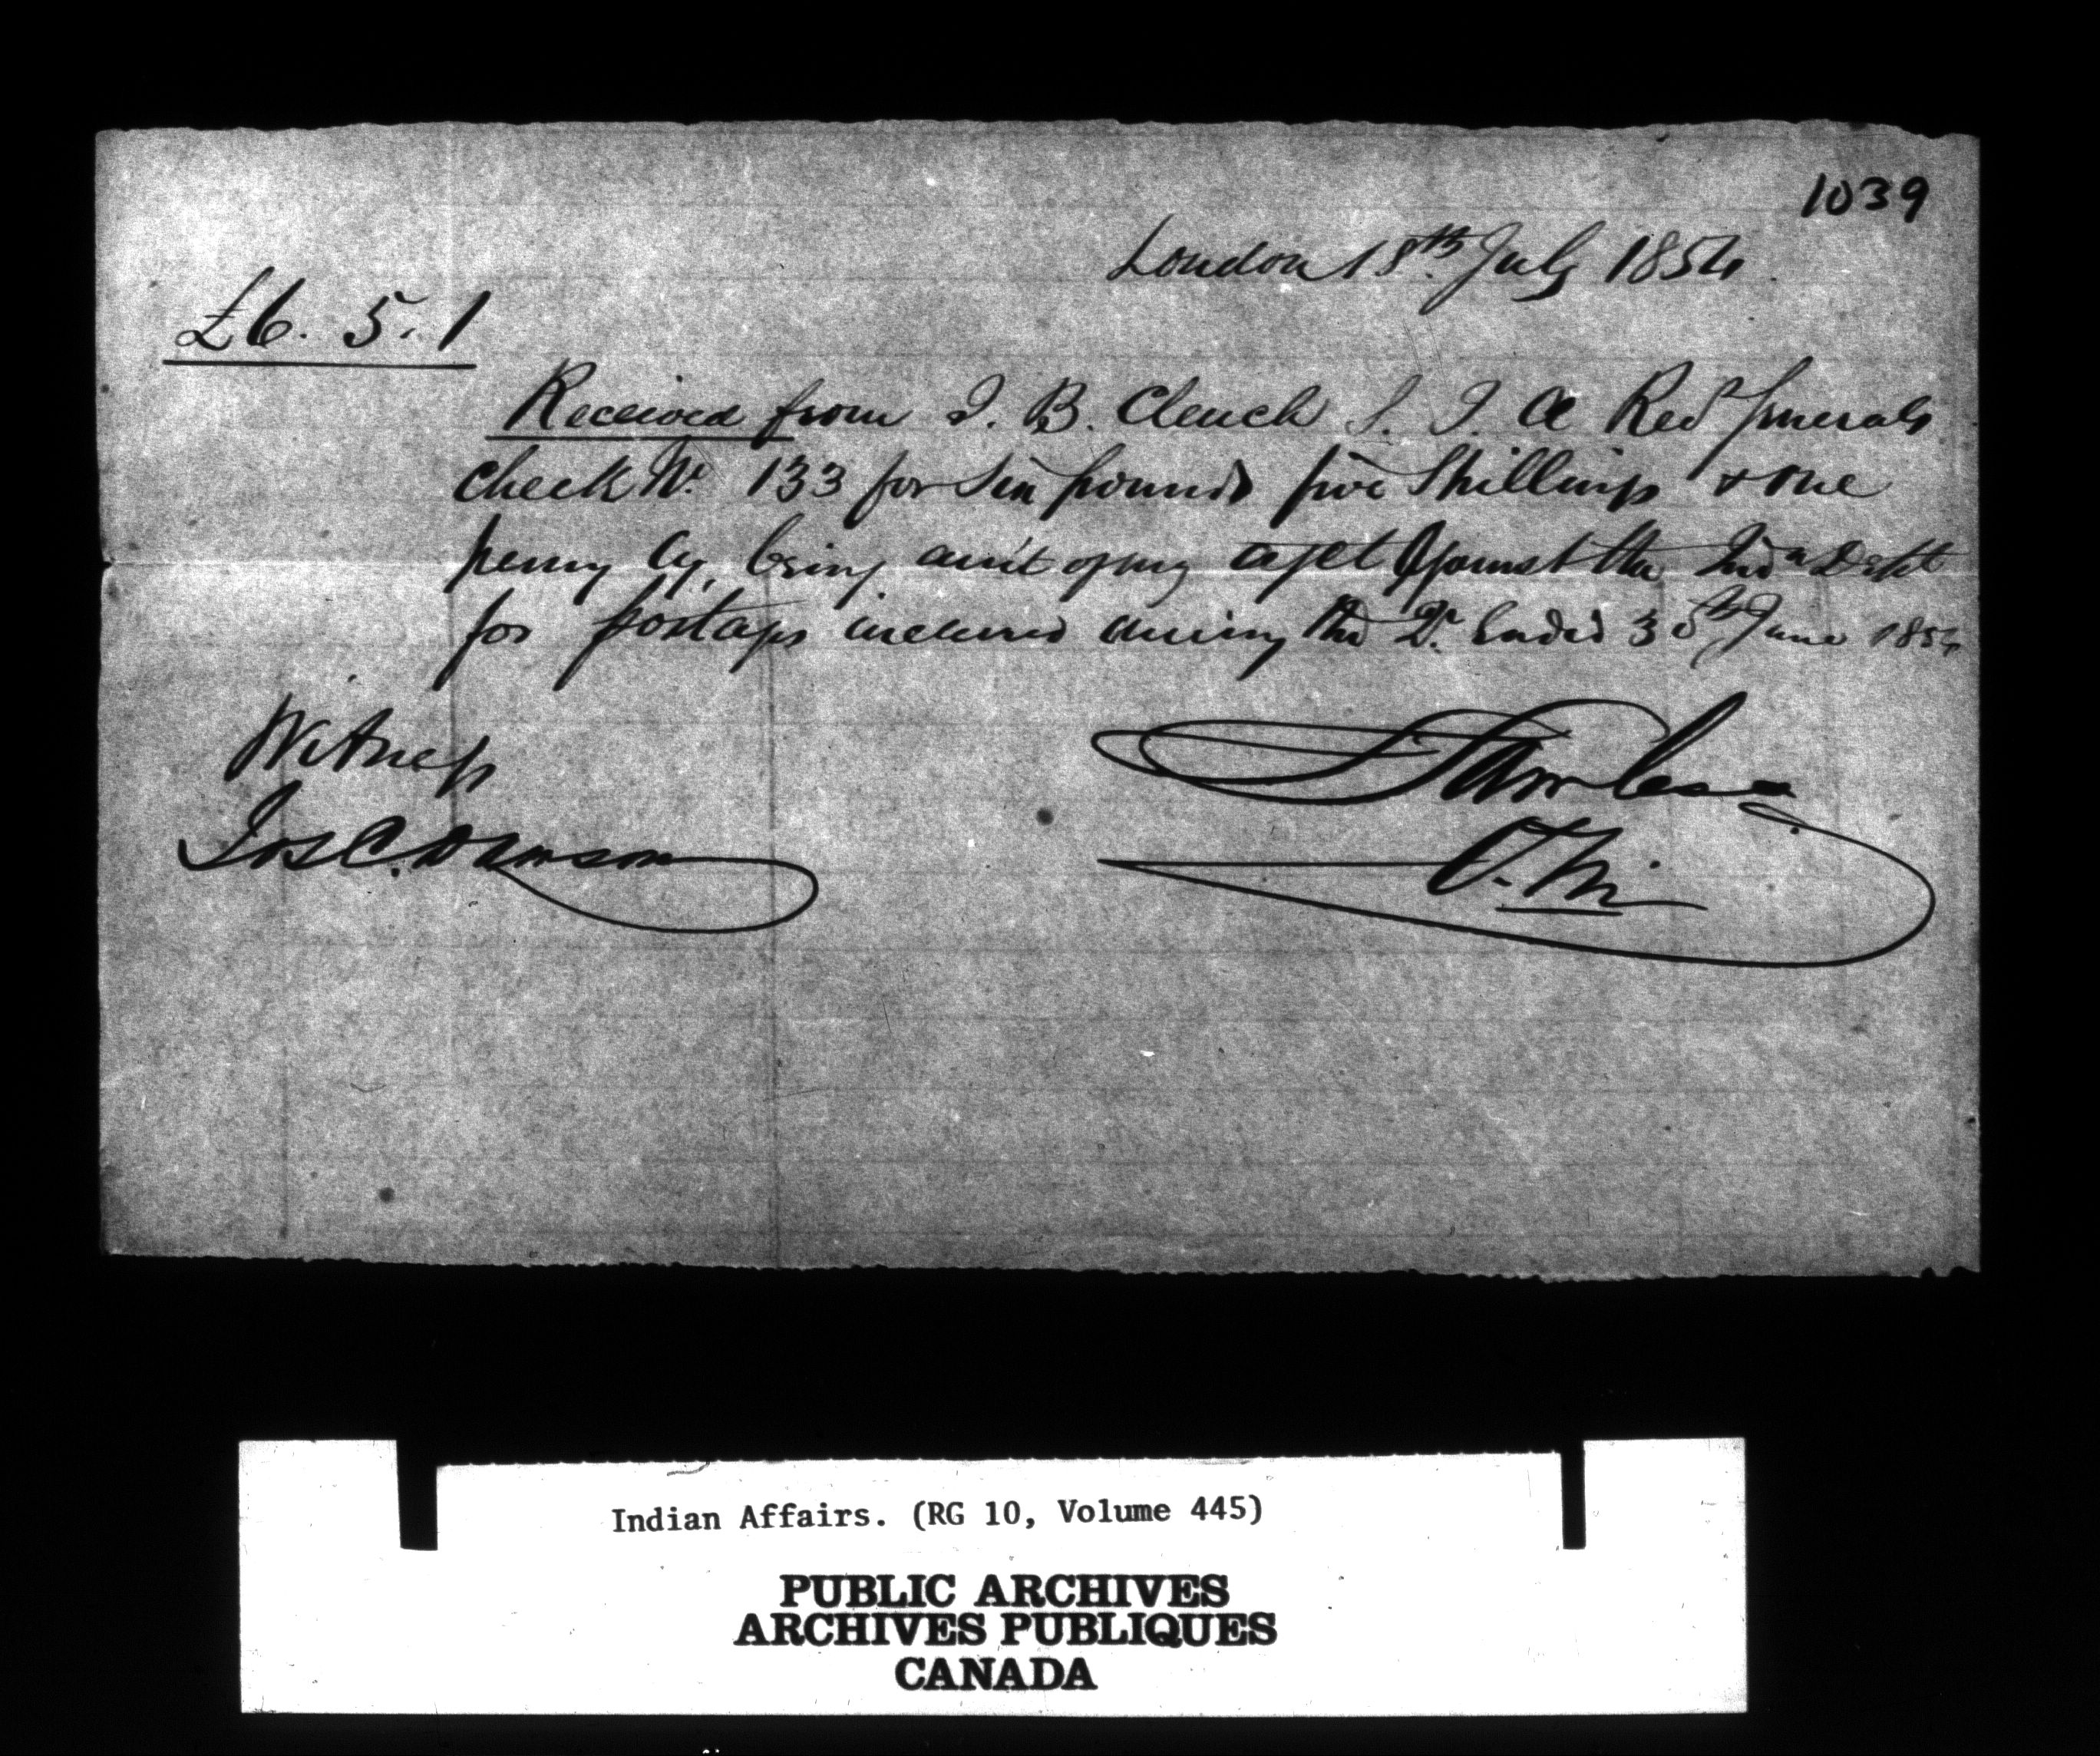 1039
London 18th July 1854
£6. 5. 1
Received from J. B. Clench S. I. A Recr Generals
check No. 133 for Six pounds five Shillings & one
penny Cy, being am't of my acct against the Indn Dept
for postages incurred during the Qr. Ended 30th June 1854
Witness
Jos C. Dawson
P. M.
Indian Affairs. (RG 10, Volume 445)
PUBLIC ARCHIVES
ARCHIVES PUBLIQUES
CANADA